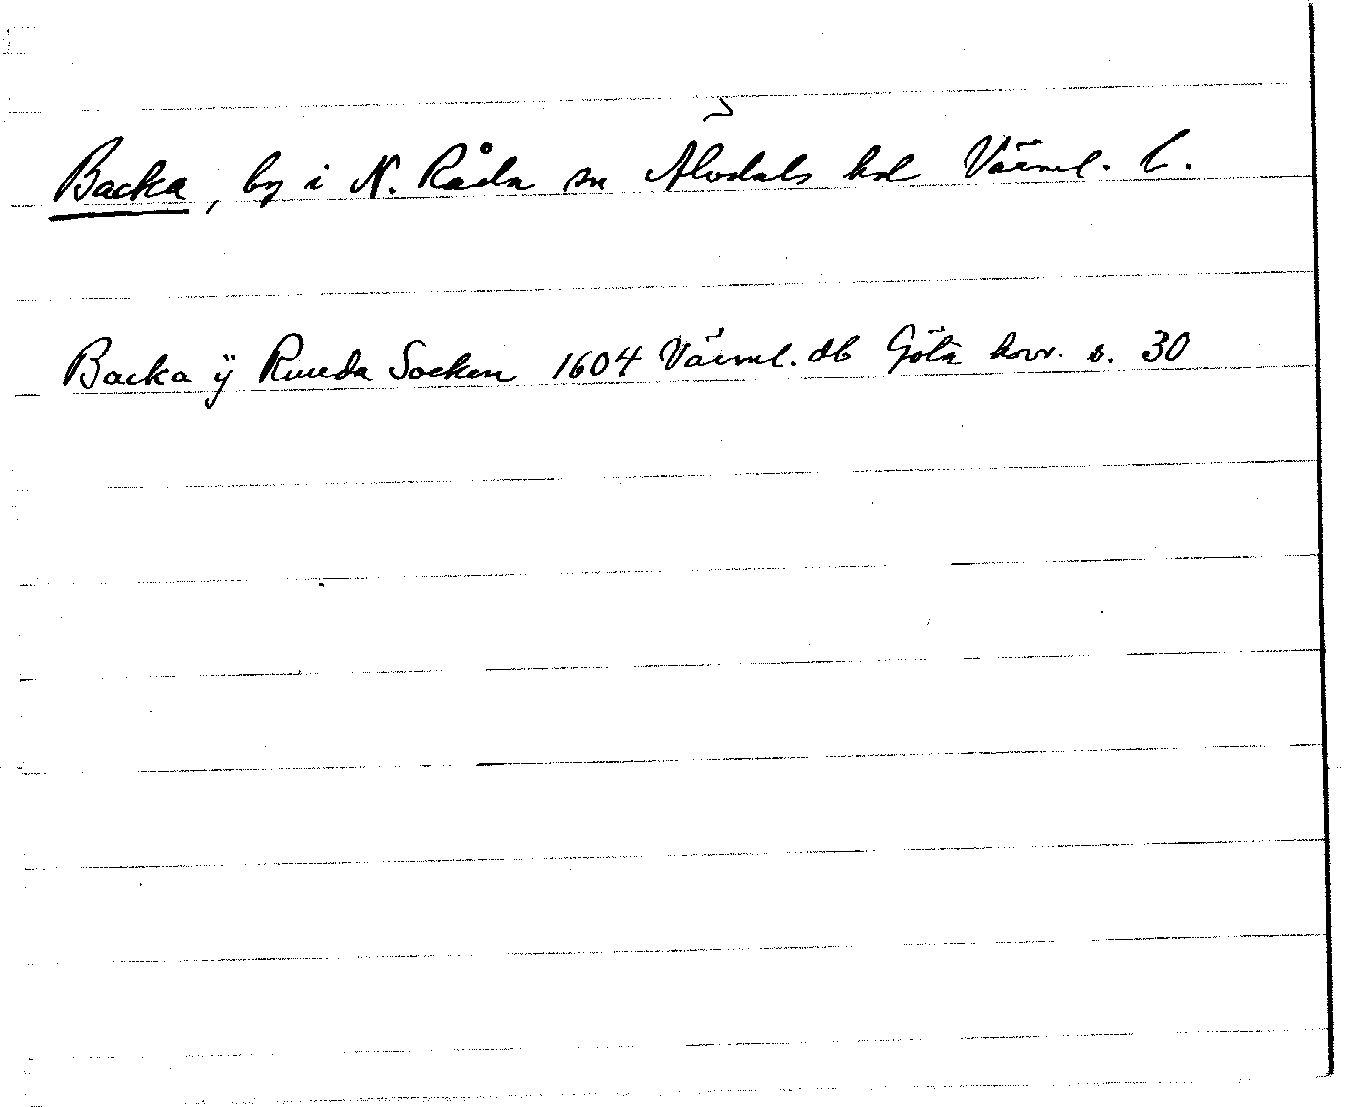 Backa, by i N. Råda sn Älvdals hd Värml. l.
Backa ÿ Rueda Socken 1604 Värml. db Göta hovr. s. 30